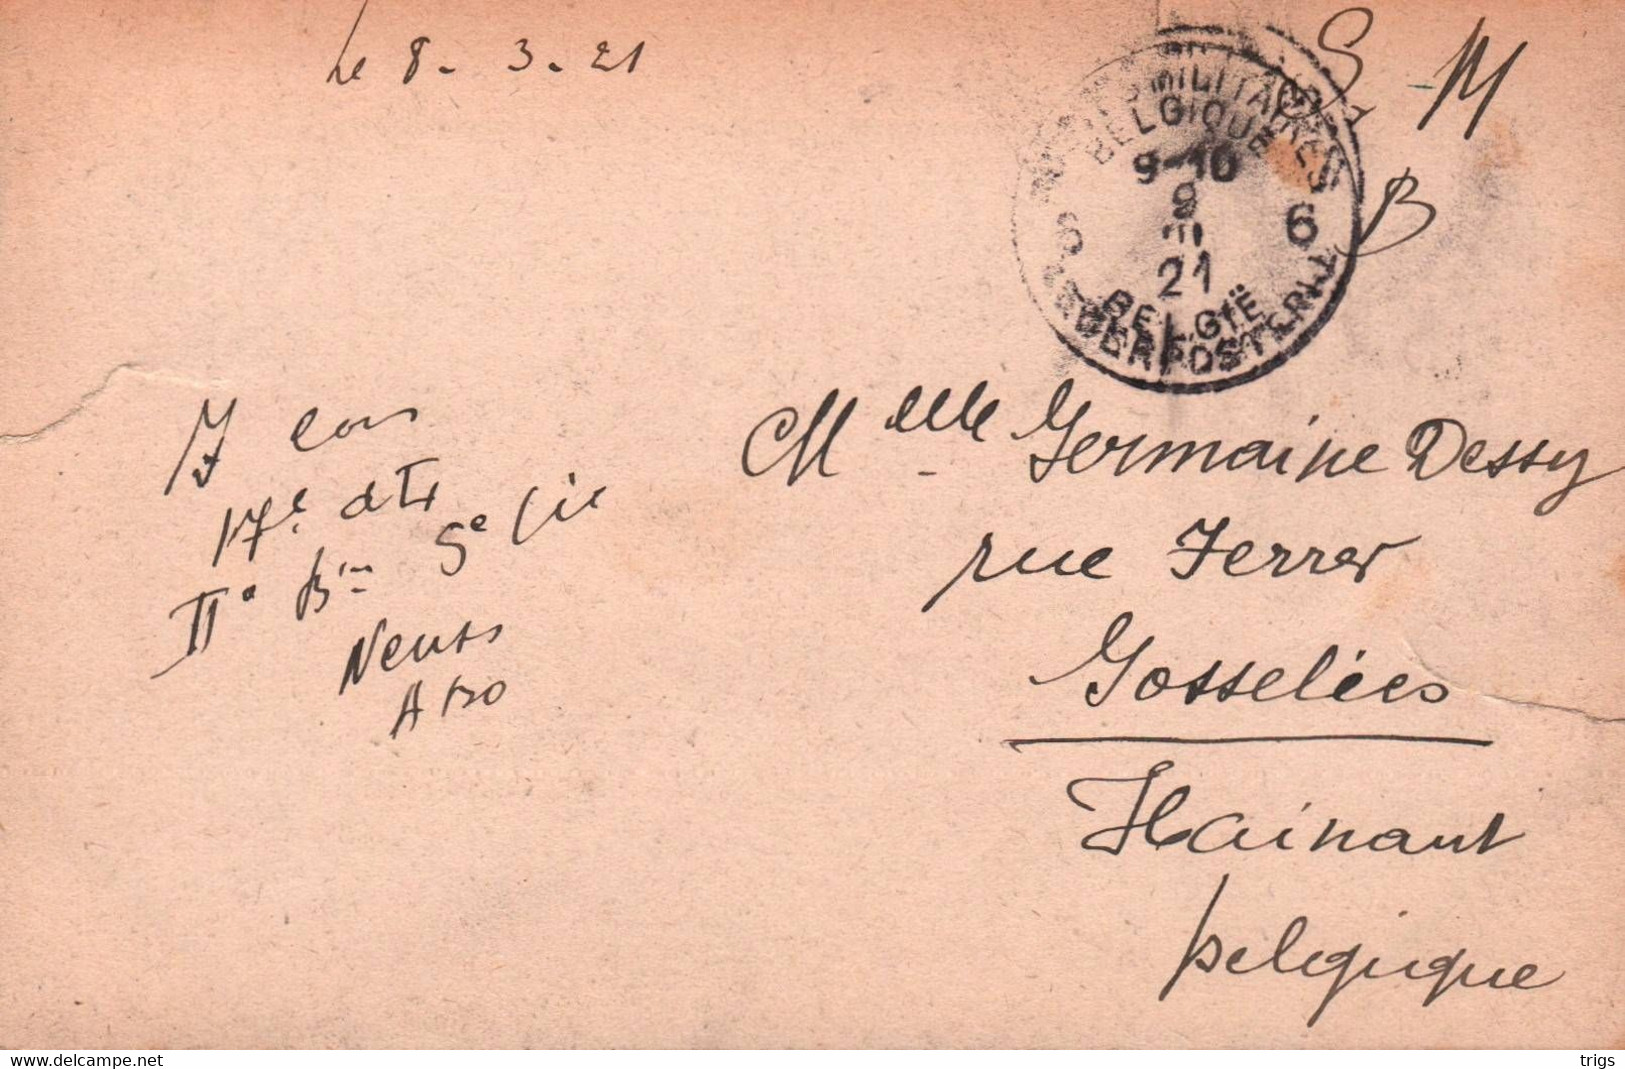 Le 8. 3. 21
S - M
B
POSTES MILITAIRES
BELGIQUE
9-10
9
III
21
6 6
BELGIË
LEGERPOSTERIJ
17e
IIe Bn 5e Cie
Neuss
A B O
Melle Germaine Dessy
rue Ferrer
Gosselies
Hainaut
belgique
www.delcampe.net
trigs